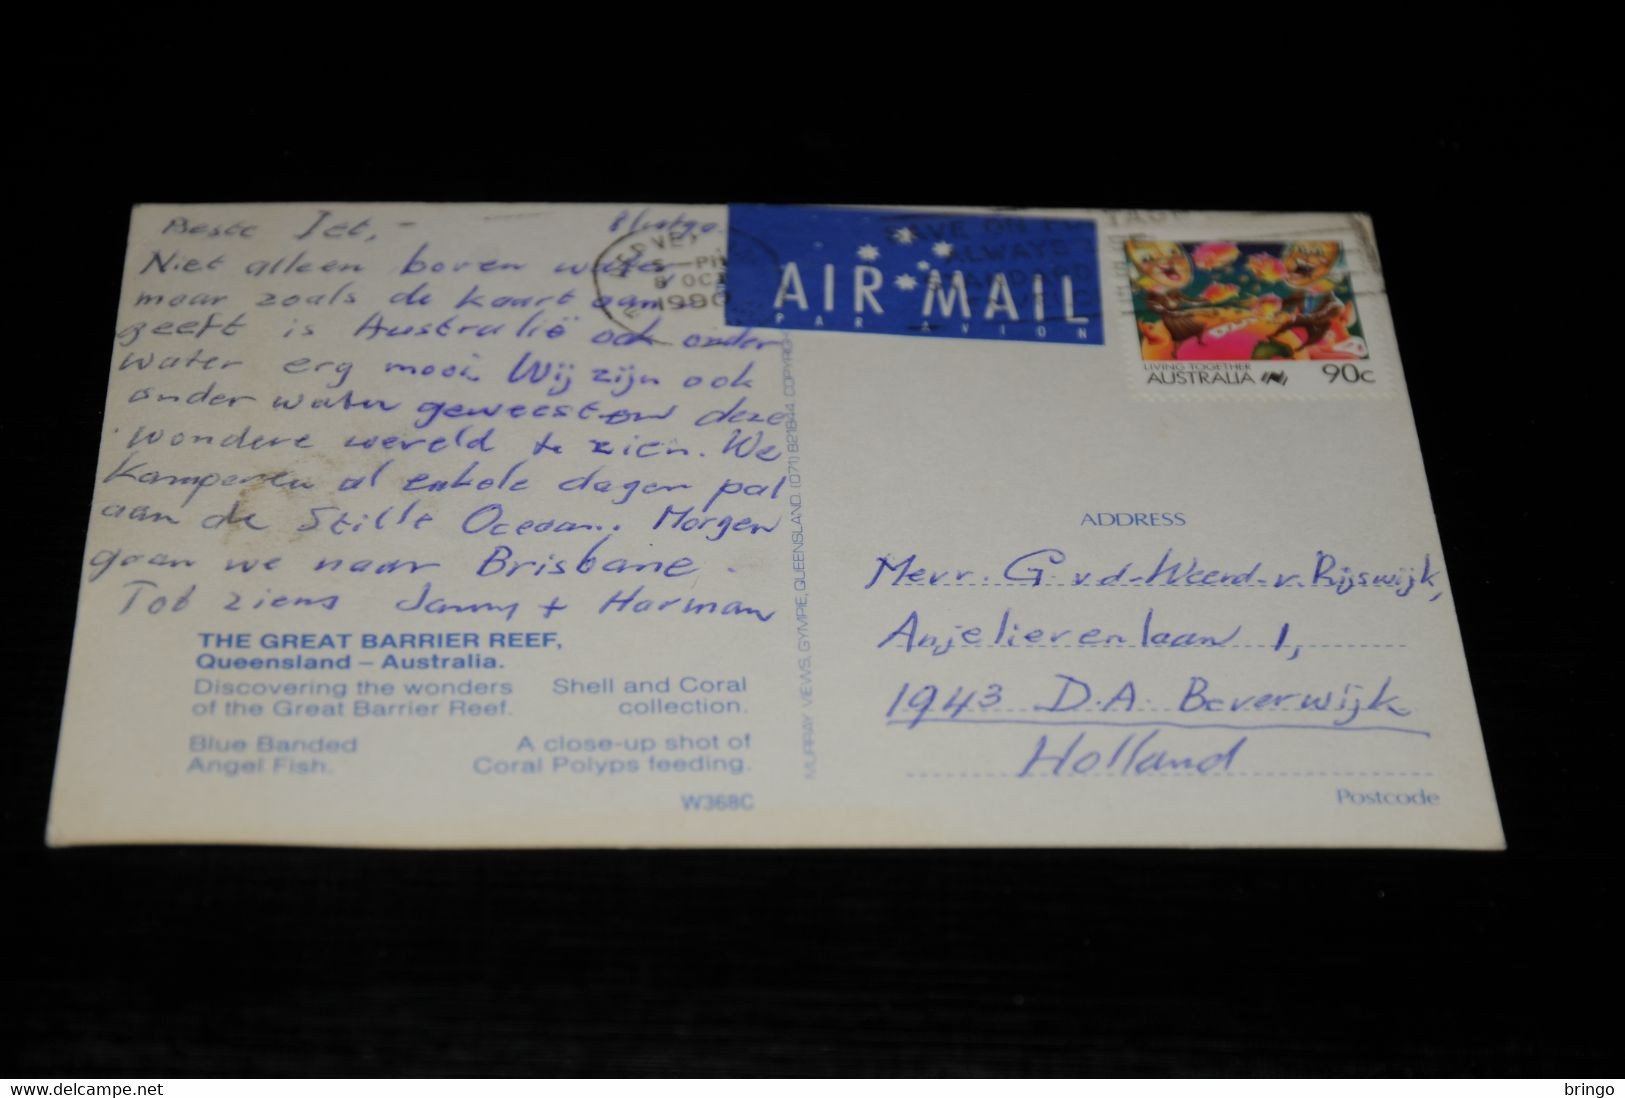 Beste Jet,-
Niet alleen boven water
maar zoals de kaart aan-
geeft is Australië ook onder
water erg mooi. Wij zijn ook
onder water geweest om deze
wondere wereld te zien. We
kamperen al enkele dagen pal
aan de Stille Oceaan. Morgen
gaan we naar Brisbane.
Tot ziens Janny + Harman
THE GREAT BARRIER REEF,
Queensland – Australia.
Discovering the wonders
of the Great Barrier Reef.
Shell and Coral
collection.
Blue Banded
Angel Fish.
A close-up shot of
Coral Polyps feeding.
W368C
MURRAY VIEWS, GYMPIE, QUEENSLAND. (071) 821844. COPYRIGH
HERVEY
5-PM
8 OCT
1990
AIR MAIL
PAR AVION
SAVE ON
ALWAYS
STANDARD
LIVING TOGETHER
AUSTRALIA 90c
ADDRESS
Mevr. G. v.d. Weerd-v. Rijswijk,
Anjelierenlaan 1,
1943 D.A. Beverwijk
Holland
Postcode
delcampe.net
bringo